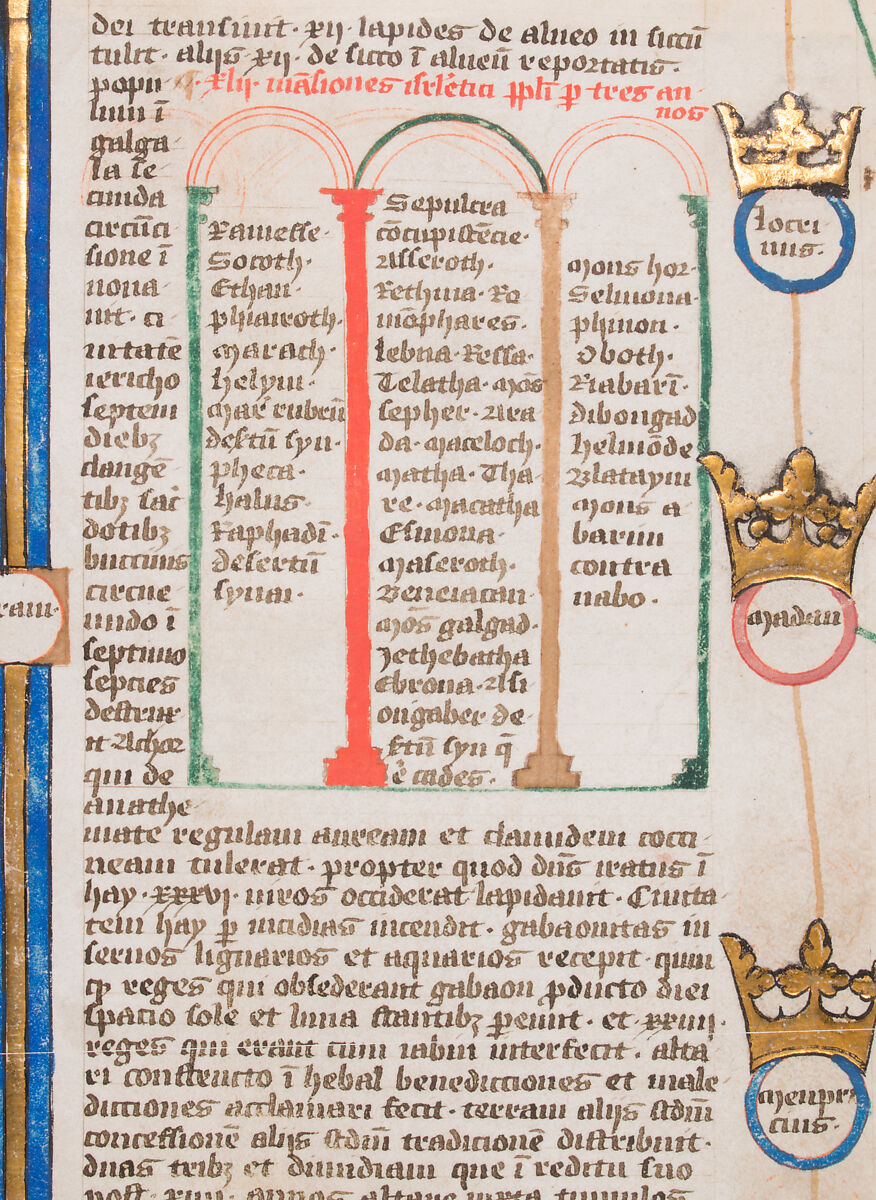 dei transiuit · xii · lapides de alueo in siccū
tulit · aliis · xii · de sicco ī alueū reportatis ·
popu
· xlii · māsiones isrl'etici ppl'i p tres an-
nos
lum ī
galga
la se
cunda
circūci
sione ī
noua-
uit · ci
uitatē
iericho
septem
dieb3
clangē
tib3 sac̄
dotib3
buccinis
circue
undo ī
septimo
septies
destrux-
it Achor
qui de
anathe
Ramesse ·
Socoth ·
Ethan ·
phiairoth ·
Marath ·
helym ·
Mar̄ rubrū
desr̄tū syn ·
pheca ·
halus ·
Raphadī ·
desertū
synai ·
Sepulcra
cōcupistēcie ·
Asseroth ·
Rethma · Ro
mōphares ·
lebna · Ressa ·
Celatha · Mōs
sepher · Ara
da · Maceloch ·
Matha · Tha
re · Macatha
Esmona ·
Maseroth ·
Beneiacan
Mōs galgad ·
Jethebatha
Ebrona · Asi
ongaber de-
sr̄tū syn q̄
ē cades ·
Mons hor ·
Selmona ·
phinon ·
Oboth ·
Riabarī ·
dibongad
helmōde
Blataym
Mons a
barim
contra
nabo ·
mate regulam auream et clamidem cocci-
neam tulerat · propter quod dn̄s iratus ī
hay · xxxvi · uiros occiderat lapidauit · Ciuita-
tem hay p̄ incidias incendit · gabaonitas in
seruos lignarios et aquarios recepit · quin
q̨ reges qui obsederant gabaon pducto diei
spacio sole et luna stantib3 p̄emit · et · xxiiii ·
reges qui erant cum iabin interfecit · alta-
ri constructo ī hebal benedictiones et male-
dictiones acclamari fecit · terram aliis sc̄dm̄
concessionē aliis sc̄dm̄ tradicionē distribuit ·
duas trib3 et dimidiam que ī reditu suo
post · xiiii · annos altare iuxta tumulos
ram ·
locri
nus ·
Madan
Menpri
cius ·